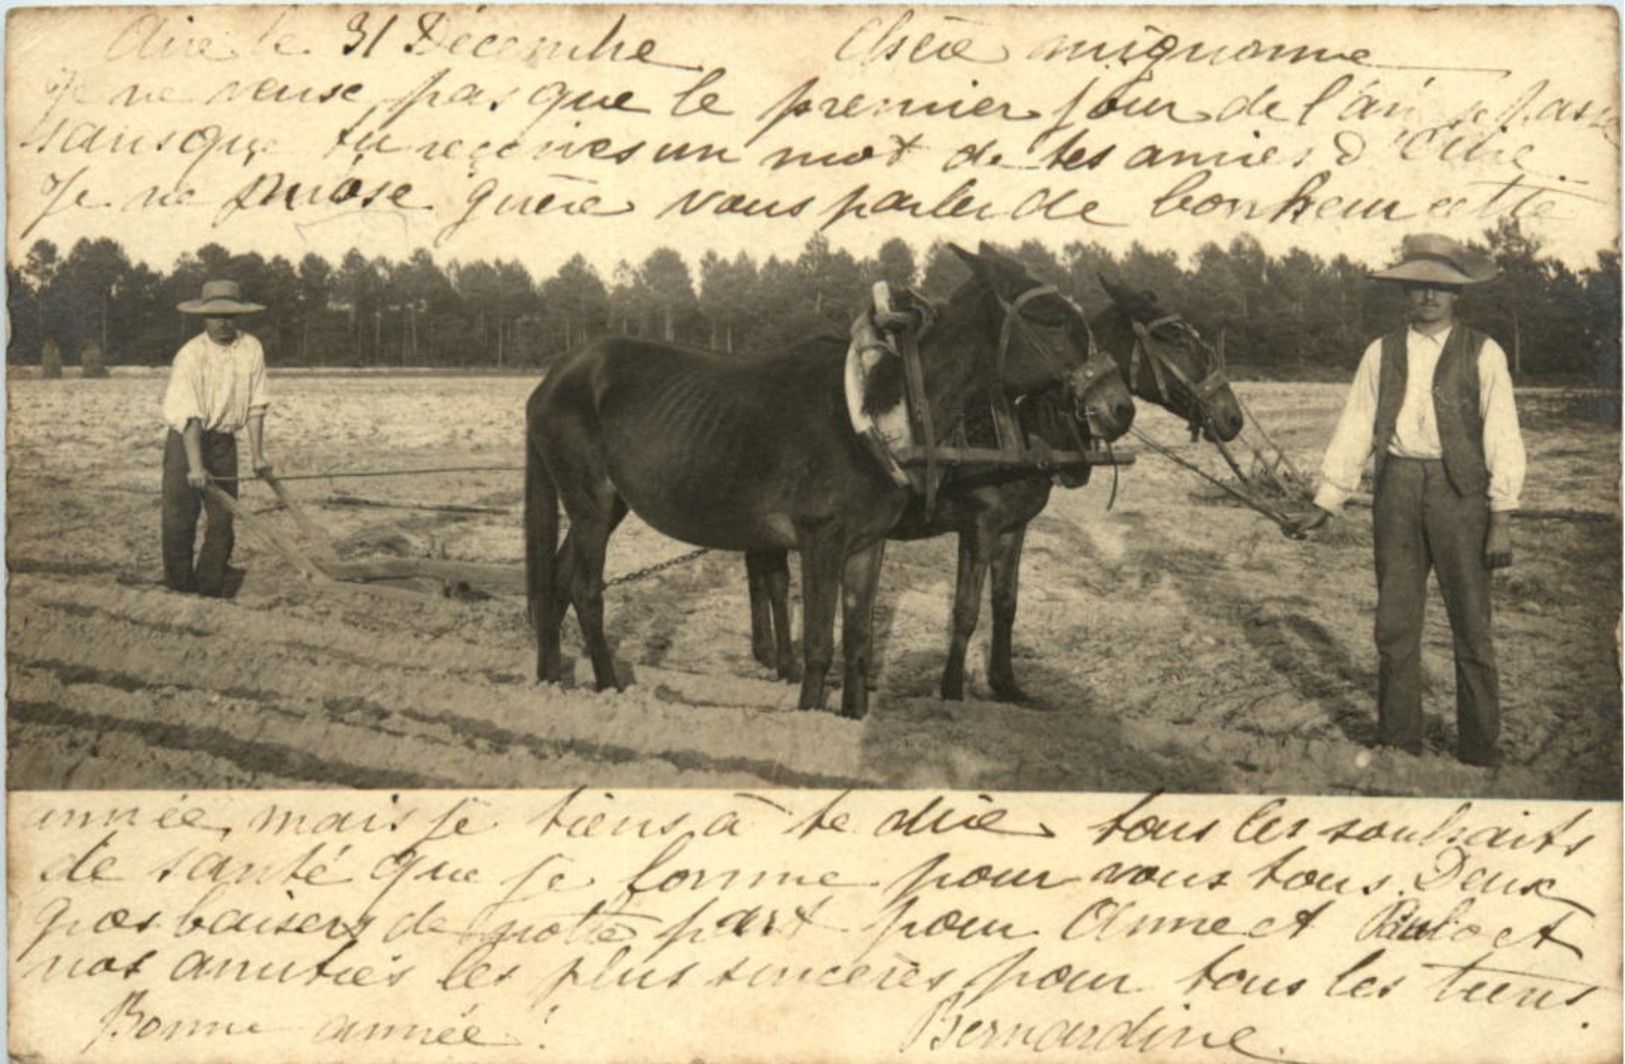 Aire le 31 Décembre Chère mignonne
Je ne veux pas que le premier jour de l'an se passe
sans que tu reçoives un mot de tes amies d'Aire
Je ne puis guère vous parler de bonheur cette
année, mais je tiens à te dire tous les souhaits
de santé que je forme pour vous tous. Deux
gros baisers de notre part pour Anne et et
nos amitiés les plus sincères pour tous les tiens.
Bonne année! Bernardine